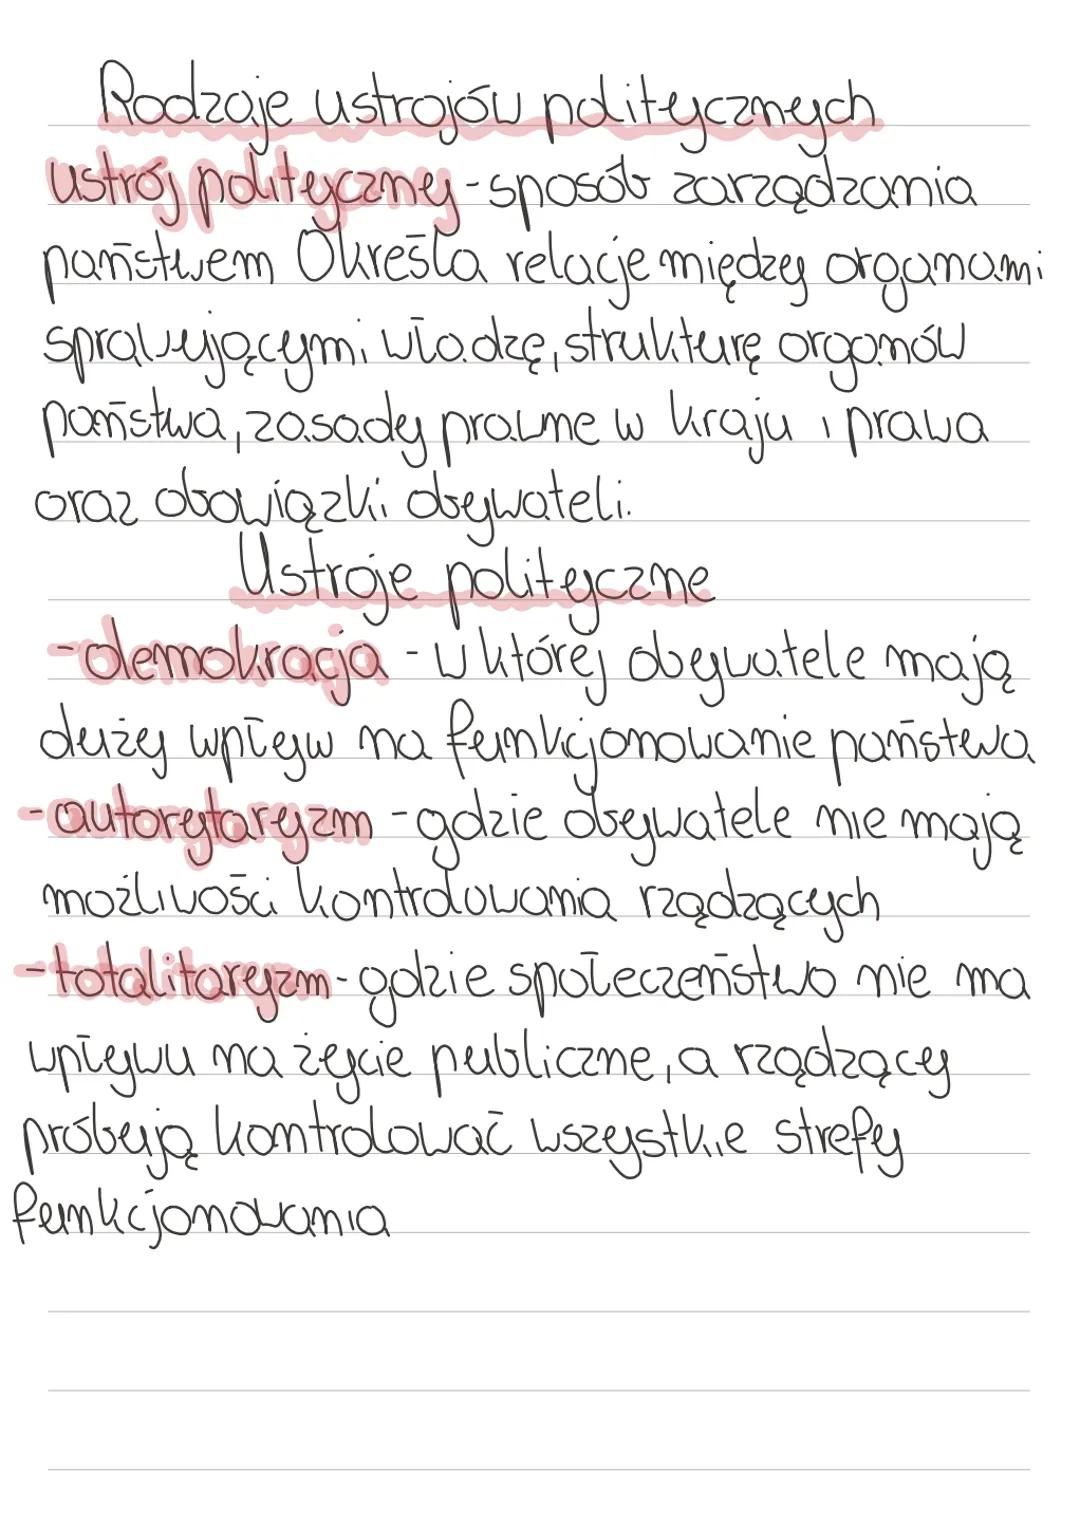 Rodzaje ustrojów politycznych
ustrój polityczny - sposób zarządzania
państwem Określa relacje między organami
sprawującymi władzę, strukturę organów
państwa, zasady prawne w kraju i prawa
oraz obowiązki obywateli.
Ustroje polityczne
- demokracja - w której obywatele mają
duży wpływ na funkcjonowanie państwa
- autorytaryzm - gdzie obywatele nie mają
możliwości kontrolowania rządzących
- totalitaryzm - gdzie społeczeństwo nie ma
wpływu na życie publiczne, a rządzący
próbują kontrolować wszystkie strefy
funkcjonowania